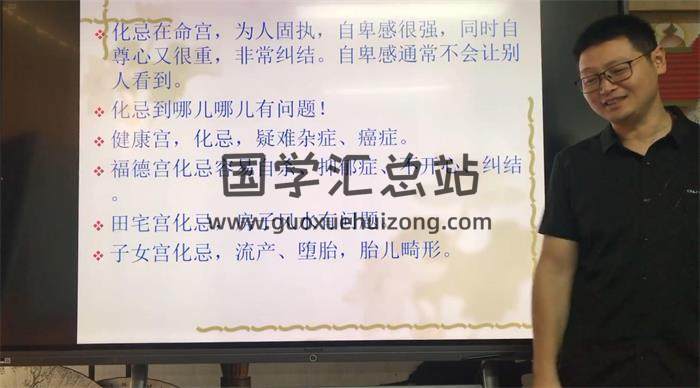 化忌在命宫，为人固执，自卑感很强，同时自
尊心又很重，非常纠结。自卑感通常不会让别
人看到。
化忌到哪儿哪儿有问题！
健康宫，化忌，疑难杂症、癌症。
福德宫化忌容易自杀、抑郁症、不开心、纠结
。
国学汇总站
田宅宫化忌，房子风水有问题
www.guoxuehuizong.com
子女宫化忌，流产、堕胎，胎儿畸形。